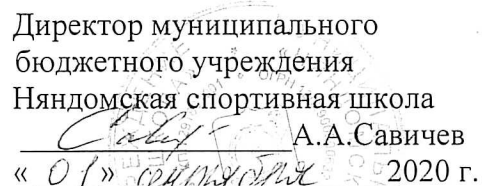 Директор муниципального
бюджетного учреждения
Няндомская спортивная школа
А.А.Савичев
« 01 » сентября 2020 г.